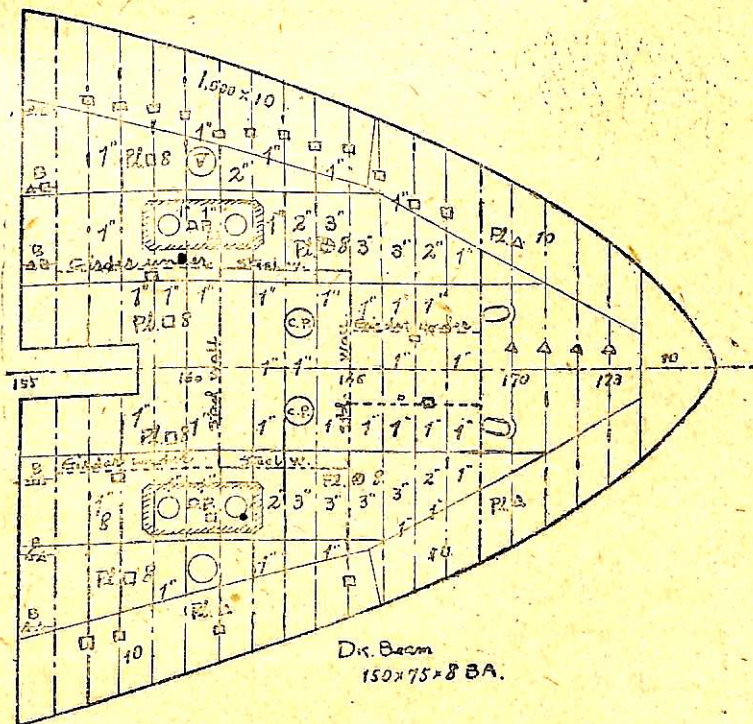 1,500 x 10
1" 1" 1" 1"
1" Pl 8 V 2" 1"
1" Pl 10
1" 1" 1" 1" 2" 3"
Pl 8 3" 3" 2" 1"
Girder under Steel W.
1" 1" 1" 1" 1" 1" 1" 1"
Pl 8 C.P. Girder under
1" 1" 1" 1"
155 160 Steel Wall 166 170 173 10
1" C.P.
Pl 8 1" 1" 1" 1" 1" 1" 1"
Girder under Steel W. Pl 8 2" 1"
1" 8 D.P. 2" 3" 3" 3" 3" Pl
1" 1"
Pl 8 1" 1" 1" 10
Pl
10
Dk. Beam
150x75x8 BA.